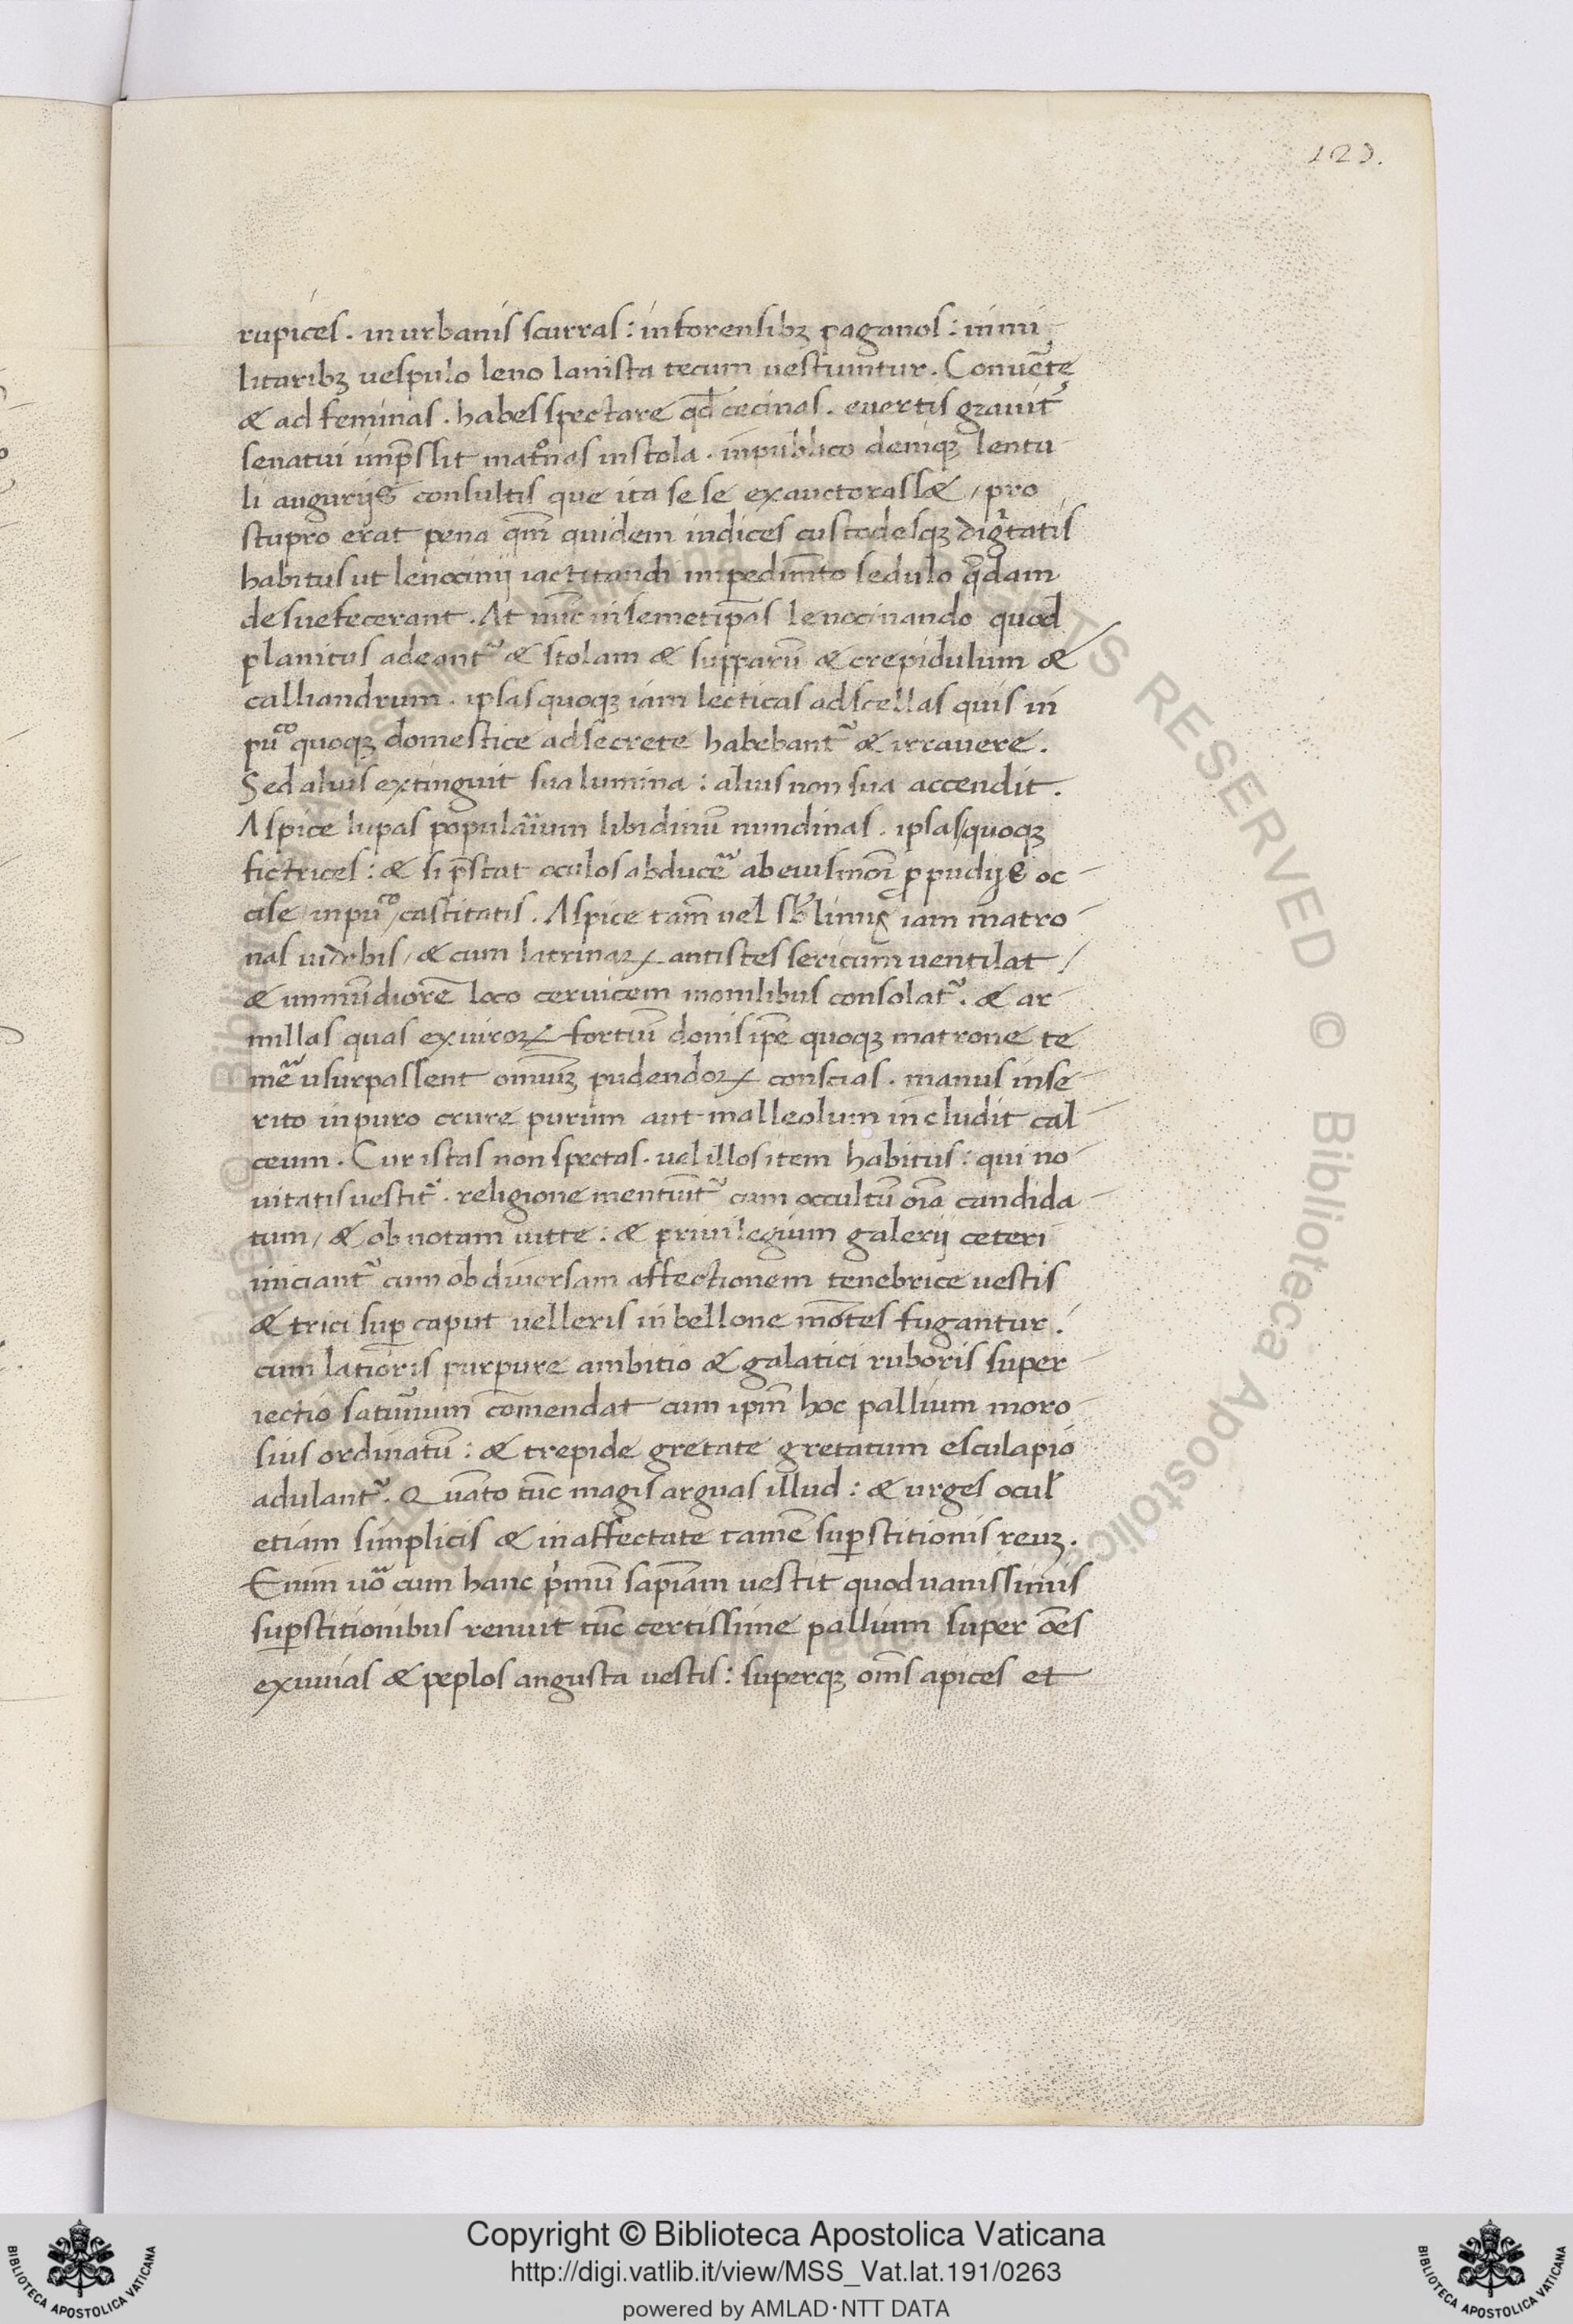 129.
rupices. in urbanis scurras: in forensibꝫ paganos: in mi-
litaribꝫ vespulo leno lanista tecum vestiuntur. Conuēte
& ad feminas. habes spectare qd̄ cecinas. euertis grauit᷑
senatui imp̄ssit matͦnas in stola. in publico deniqꝫ lentu-
li augurijs consultis que ita se se exauctorass&, pro
stupro erat pena qm̄ quidem iudices custodesqꝫ dig̃tatis
habitus ut lenocinij iactitandi impedim̄to sedulo q̄dam
desuefecerant. At nūc in semetip̄as lenocinando quod
planitus adeant᷑ & stolam & supparū & crepidulum &
calliandrum. ipsas quoqꝫ iam lecticas ad scellas quis in
pu͞co quoqꝫ domestice ad secrete habebant᷑ & irrauere.
Sed alius extinguit sua lumina: alius non sua accendit.
Aspice lupas popularium libidinū nundinas. ipsas quoqꝫ
fictrices: & si p̄stat oculos abducē ab eiusmōi ꝓpudijs oc-
cise in pu͞co castitatis. Aspice tam̄ vel sb̄limis iam matro-
nas videbis, & cum latrinaꝝ antistes sericum ventilat,
& immūdiorē loco ceruicem monilibus consolat᷑. & ar-
millas quas ex viroꝝ fortiū donis ip̄e quoqꝫ matrone te-
mē usurpassent omniuꝫ pudendoꝝ conscias. manus inse-
rito in puro crure purum aut malleolum includit cal-
ceum. Cur istas non spectas. vel illos item habitus: qui no-
uitatis vestit᷑. religione mentiūt᷑ cum occultū oīa candida-
tum, & ob notam vitte: & priuilegium galerij ceteri
iniciant᷑ cum ob diuersam affectionem tenebrice vestis
& trici suꝑ caput velleris in bellone mōtes fugantur.
cum latioris purpure ambitio & galatici ruboris super-
iectio saturnum com̄endat cum ipm̄ hoc pallium moro-
sius ordinatū: & trepide gretate gretatum esculapio
adulant᷑. Quāto tūc magis arguas illud: & urges ocul̄
etiam simplicis & inaffectate tamē suꝑstitionis reuꝫ.
Enim uͦo cum hanc p̄mū sapīam vestit quod vanissimis
suꝑstitionibus renuit tūc certissime pallium super oēs
exuuias & peplos angusta vestis: superqꝫ omīs apices et
Copyright © Biblioteca Apostolica Vaticana
http://digi.vatlib.it/view/MSS_Vat.lat.191/0263
powered by AMLAD·NTT DATA